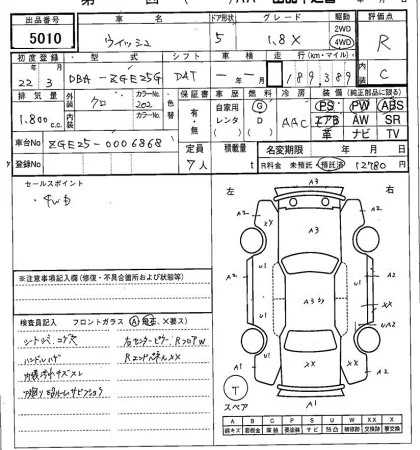 出品番号
車名
ドア形状
グレード
駆動
評価点
5010
ウィッシュ
5
1.8X
2WD
4WD
R
初度登録
型式
シフト
車検
走行(km・マイル)
内装
22年3月
DBA-ZGE25G
DAT
年 月
189,389
C
排気量
外装
カラーNo.
色替
保証書
車歴
燃料
冷房
装備(純正部品に限る)
1,800cc
クロ
202
有・無
自家用
レンタ
G
D
AAC
PS PW ABS
エアB AW SR
革 ナビ TV
内装
カラーNo.
車台No
ZGE25-0006868
定員
積載量
名変期限
年 月 日
登録No
7人
t
R料金 未預託・預託済
12780円
セールスポイント
・4WD
左
右
※注意事項記入欄(修復・不具合箇所および状態等)
検査員記入 フロントガラス (A・飛石、X要ス)
シートシミ、コゲ穴
右センターピラー、RフロアW
ハンドルハゲ
Rエンドパネルxx
内張汚れキズスレ
A3
A2
A2
xx
A3
U1
U1
A2
A3
U1
U1
xx
xx
xx
U2
A2
xx
A2
A1
A1
T
スペア
A B C P S U W XX X
線キズ
要塗装
サビ
凹凸
補修跡
交換跡
要交換